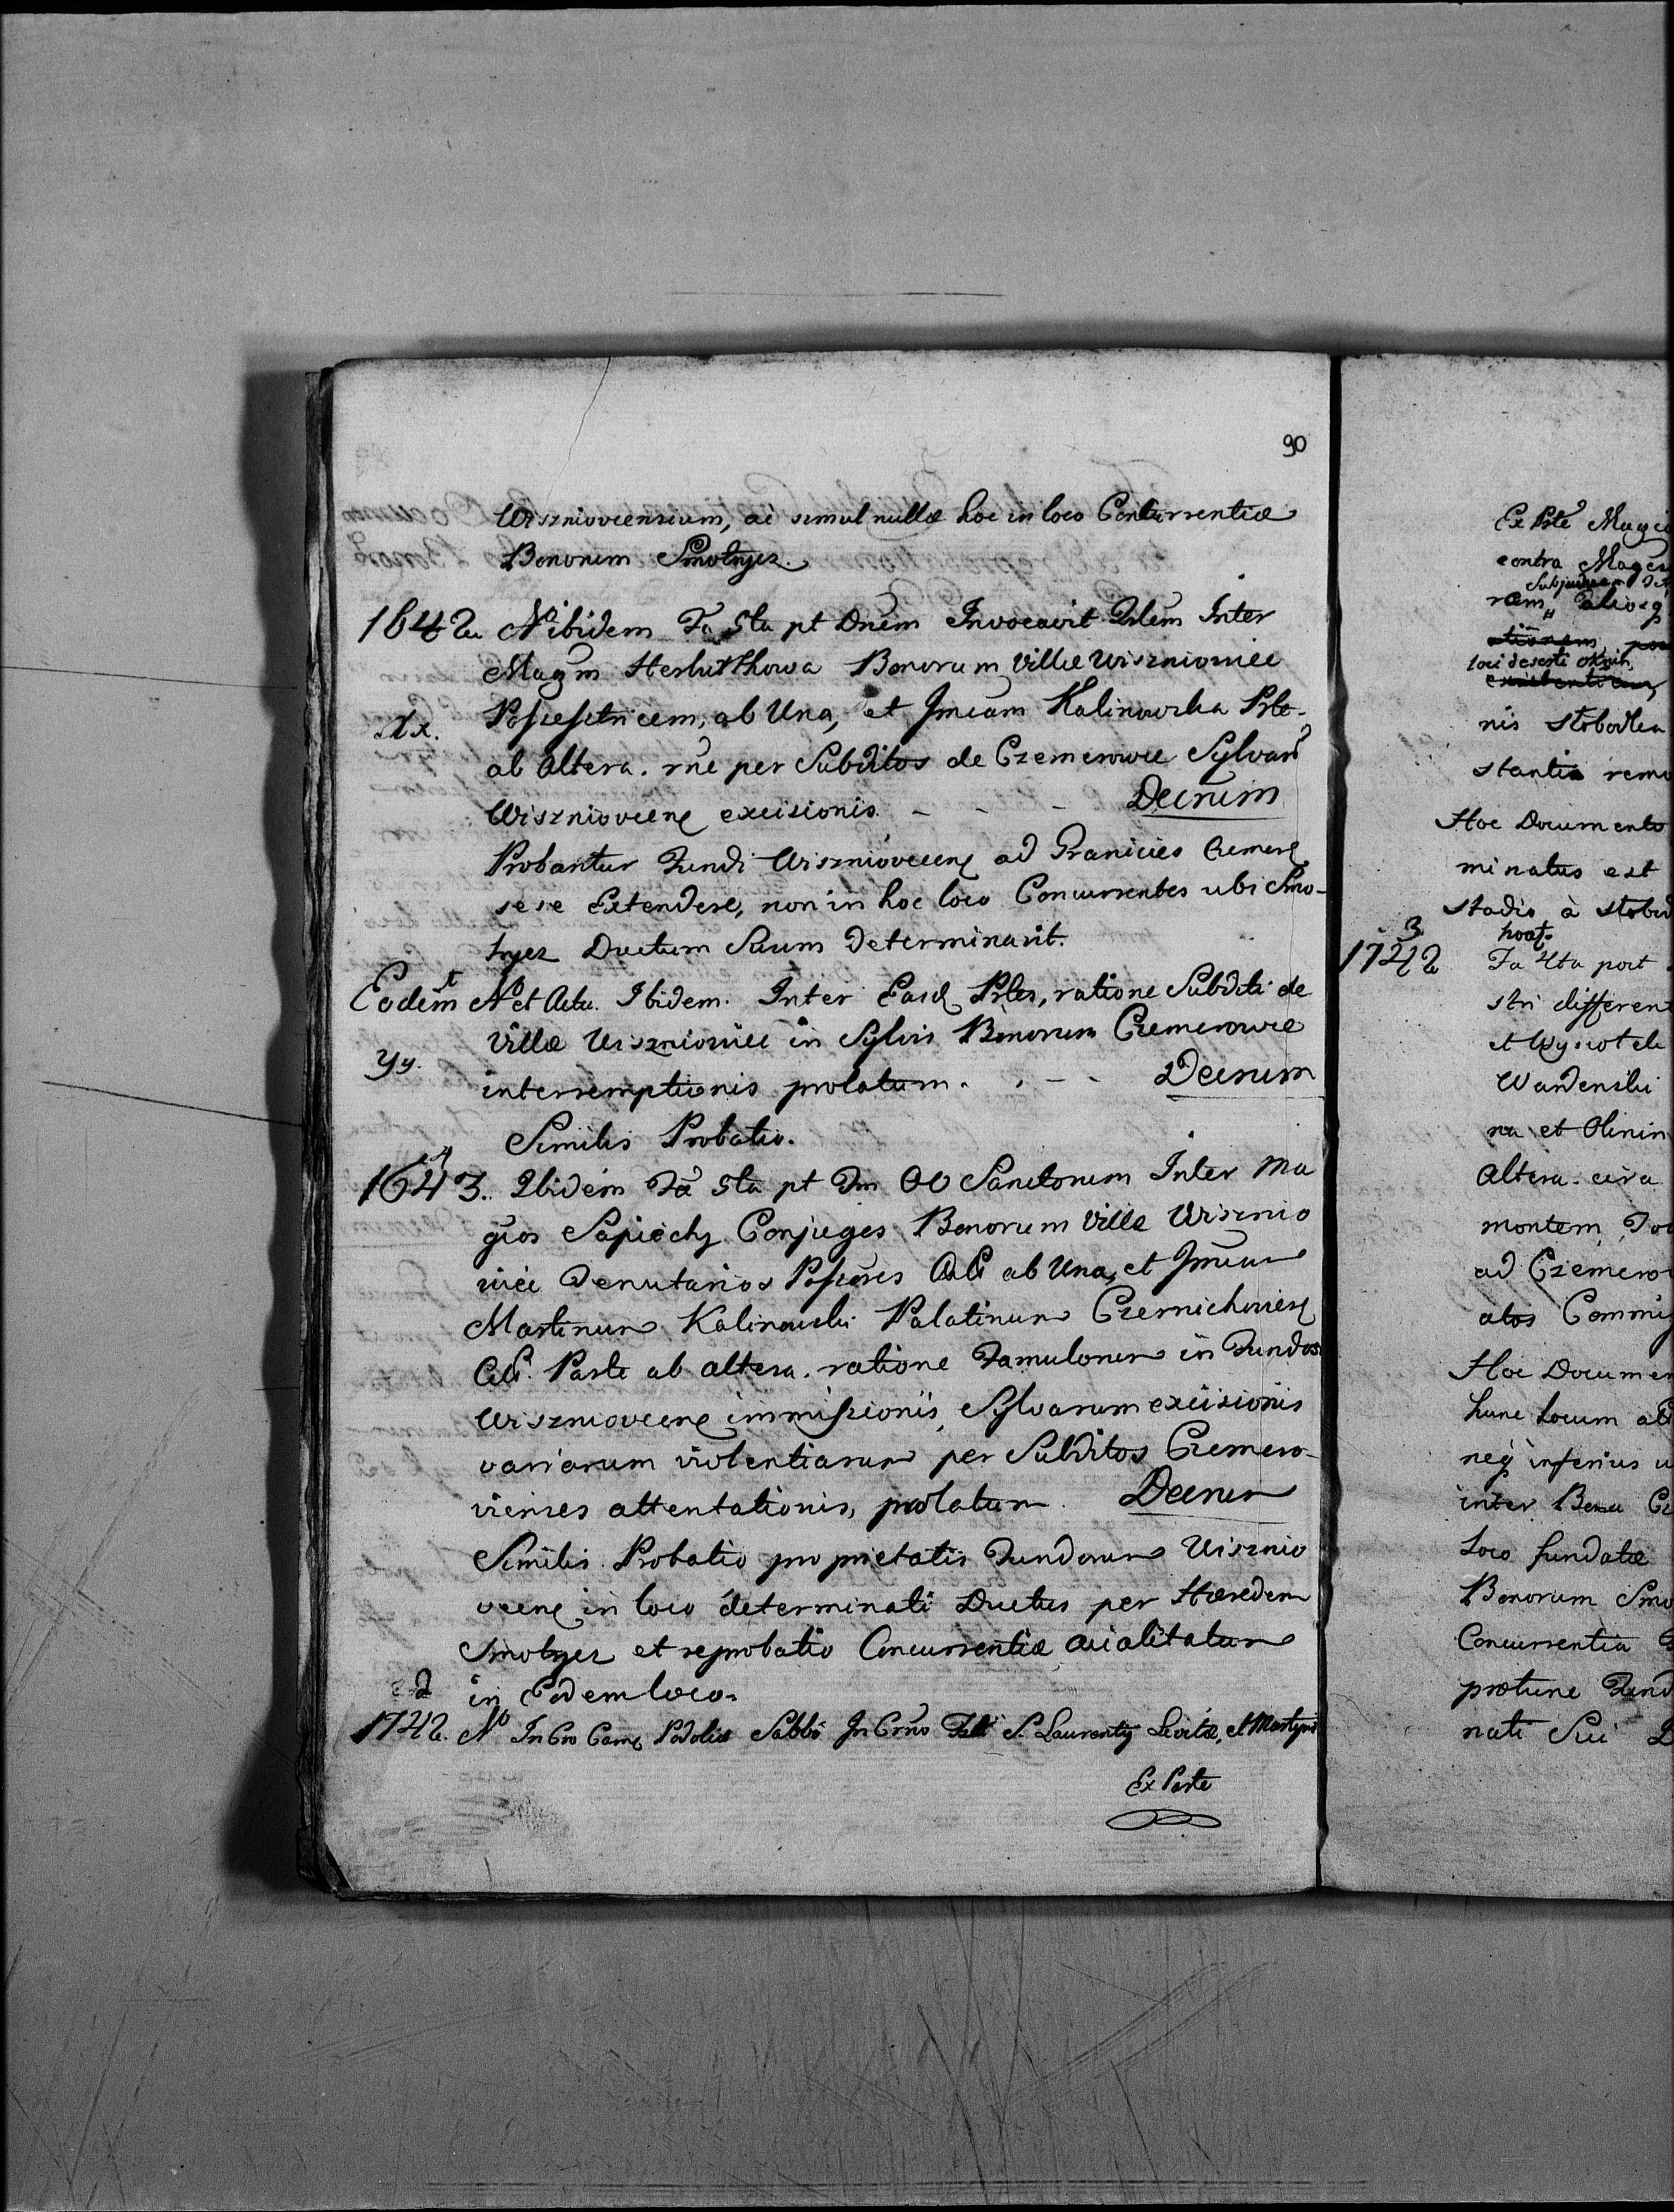 90
Wisznioviensium, ac simul nullæ hoc in loco Concurrentiæ
Bonorum Smotrycz.
1642 No ibidem Fa 5ta pt Dnem Invocavit Inter
Magm Herburthowa Bonorum Villæ Wiszniowiec
Xx. Possessetricem, ab Una, et Jmcam Kalinowska Prte
ab Altera. rne per Subditos de Czemerowce Sylvarū
Wiszniovecen excisionis. - - - Decrum
Probantur Fundi Wiszniovecen ad Granicies Czemer
sese Extendere, non in hoc loco Concurrentes ubi Smo-
trycz Ductum Suum determinavit.
Eodem No et Actu. Ibidem. Inter Easd Prtes, ratione Subditi de
Villa Wiszniowiec in Sylvis Bonorum Czemerowce
Yy. interremptionis prolatum. . - - Decrum
Similis Probatio.
1643. Ibidem Fa 5ta pt Fm OO Sanctorum Inter Ma
gcos Sapiechy Conjuges Bonorum Villæ Wisznio
wiec Tenutarios Possores Act ab Una, et Jmcum
Martinum Kalinowski Palatinum Czernichovien
Cit. Parte ab altera. ratione Famulorum in Fundos
Wiszniovecen immissionis, Sylvarum excisionis
variarum violentiarum per Subditos Czemero-
vienses attentationis, prolatum. Decrum
Similis Probatio proprietatis Fundorum Wisznio
vecen in loco determinati Ductus per Hæredem
Smotrycz et reprobatio Concurrentiæ avialitatum
in Eodem loco.
1742. No In Cro Cam Podoliæ Sabbo In Crno Fti S. Laurentij Levitæ, et Martyris
Ex Parte
Ex Prte Magci
contra Magcu
ram,, alioq
loci deserti
nis Slobodka
stantia remo
Hoc Documento
minatus est
Stadio à Slobod
3.
1742 Fa 4ta post
stri different
et Wysot
Wardenski
na et Olinin
Altera. circa
montem
ad Czemero
atos Commis
Hoc Documen
hunc Locum
neq inferius u
inter Bona Cz
Loco fundatæ
Bonorum Smo
Concurrentia
protunc Fund
nati Sui D